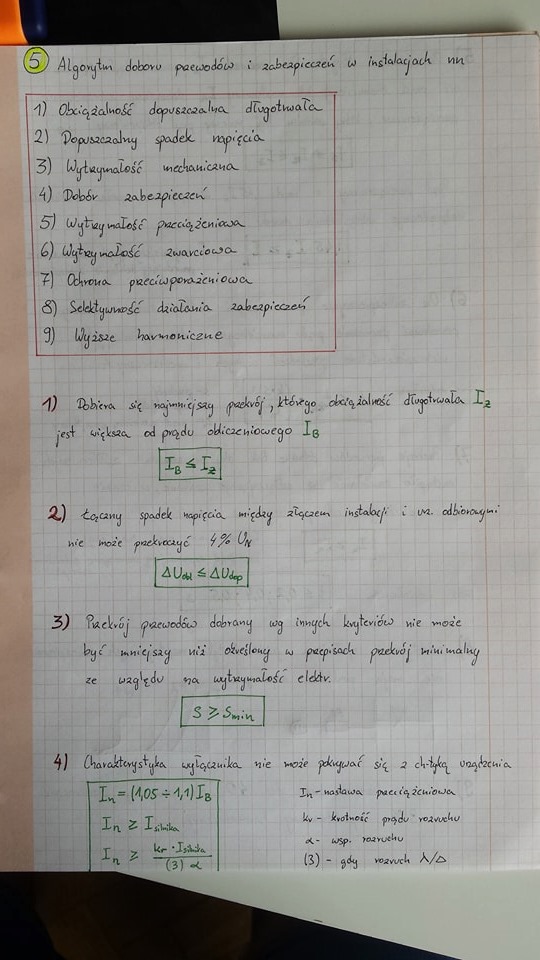 5 Algorytm doboru przewodów i zabezpieczeń w instalacjach nn
1) Obciążalność dopuszczalna długotrwała
2) Dopuszczalny spadek napięcia
3) Wytrzymałość mechaniczna
4) Dobór zabezpieczeń
5) Wytrzymałość przeciążeniowa
6) Wytrzymałość zwarciowa
7) Ochrona przeciwporażeniowa
8) Selektywność działania zabezpieczeń
9) Wyższe harmoniczne
1) Dobiera się najmniejszy przekrój, którego obciążalność długotrwała I_z
jest większa od prądu obliczeniowego I_B
I_B ≤ I_z
2) Łączny spadek napięcia między złączem instalacji i urz. odbiorowymi
nie może przekroczyć 4% U_N
ΔU_obl ≤ ΔU_dop
3) Przekrój przewodów dobrany wg innych kryteriów nie może
być mniejszy niż określony w przepisach przekrój minimalny
ze względu na wytrzymałość elektr.
S ≥ S_min
4) Charakterystyka wyłącznika nie może pokrywać się z ch-tyką urządzenia
I_n = (1,05 ÷ 1,1) I_B
I_n ≥ I_silnika
I_n ≥ k_r · I_silnika / (3) α
I_n - nastawa przeciążeniowa
k_r - krotność prądu rozruchu
α - wsp. rozruchu
(3) - gdy rozruch λ/Δ